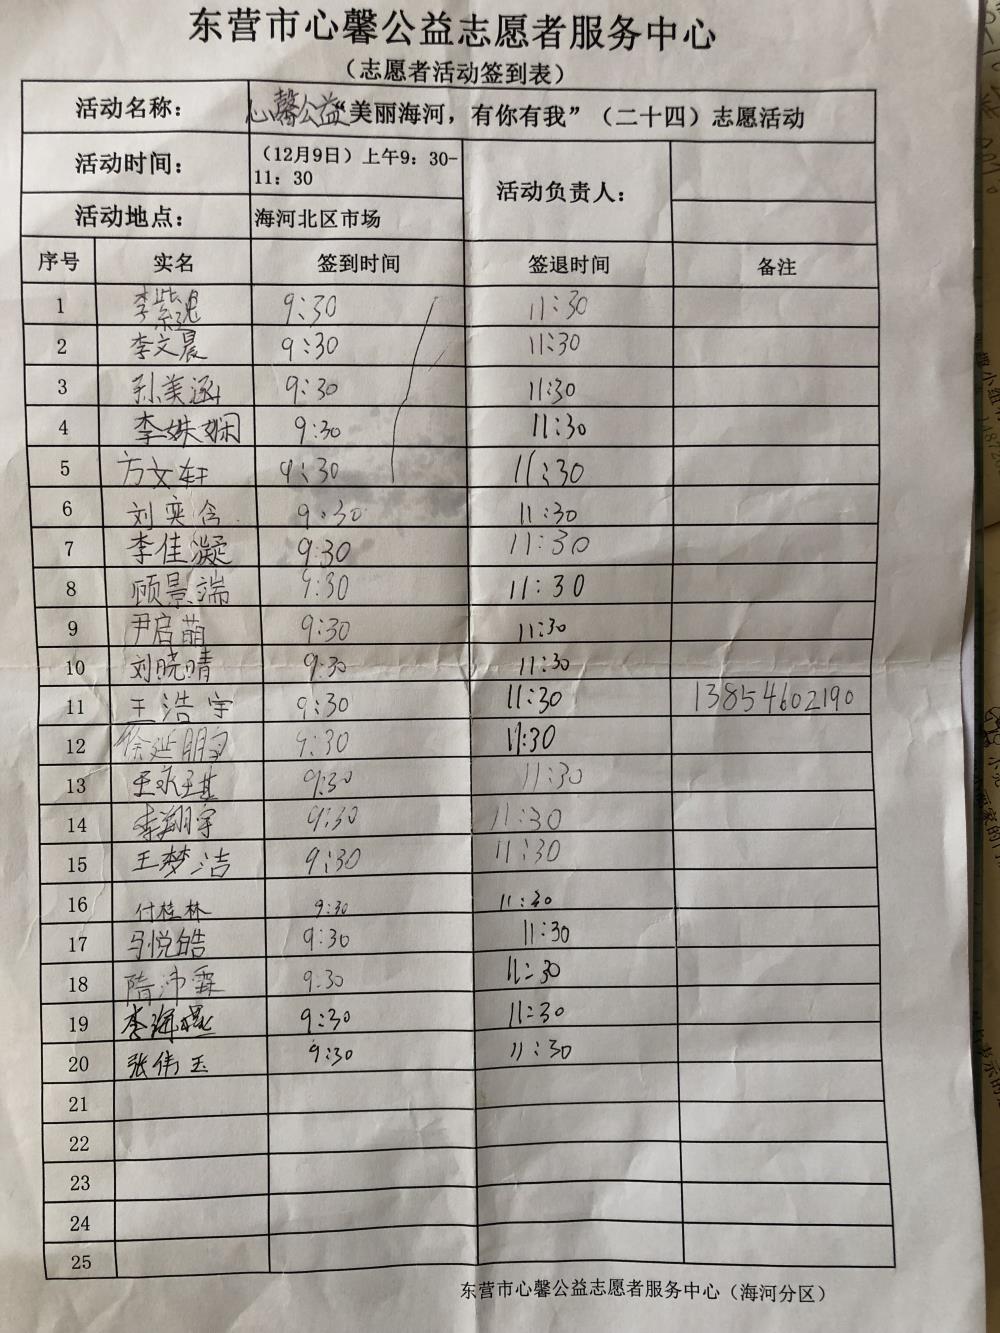 东营市心馨公益志愿者服务中心
（志愿者活动签到表）
活动名称： 心馨公益“美丽海河，有你有我”（二十四）志愿活动
活动时间： （12月9日）上午9：30-
11：30
活动负责人：
活动地点： 海河北区市场
序号 实名 签到时间 签退时间 备注
1 李紫 9:30 11:30
2 李文晨 9:30 11:30
3 孙美涵 9:30 11:30
4 李姝娴 9:30 11:30
5 方文轩 9:30 11:30
6 刘奕含 9:30 11:30
7 李佳凝 9:30 11:30
8 顾景端 9:30 11:30
9 尹启萌 9:30 11:30
10 刘晓晴 9:30 11:30
11 王浩宇 9:30 11:30 13854602190
12 徐延朋 9:30 11:30
13 王永基 9:30 11:30
14 李翔宇 9:30 11:30
15 王梦洁 9:30 11:30
16 付桂林 9:30 11:30
17 马悦皓 9:30 11:30
18 隋沛霖 9:30 11:30
19 李海 9:30 11:30
20 张伟玉 9:30 11:30
21
22
23
24
25
东营市心馨公益志愿者服务中心（海河分区）